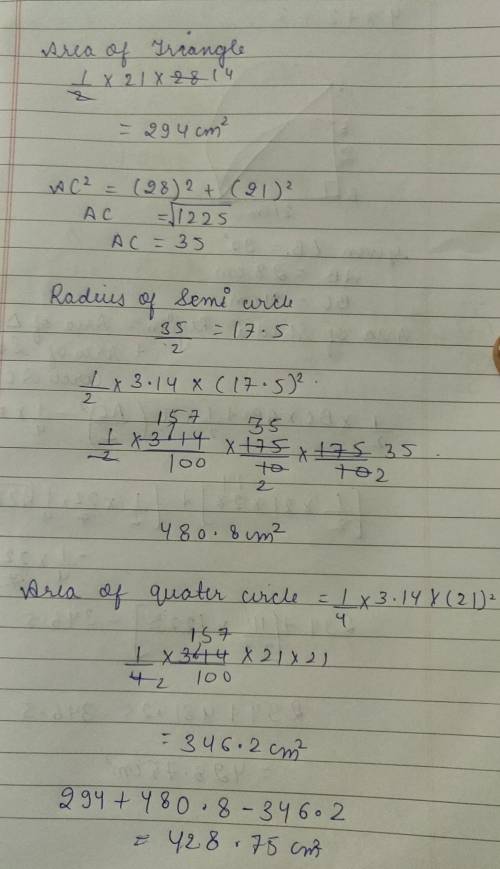 Area of Triangle
1/2 × 21 × 28 14
= 294 cm²
AC² = (28)² + (21)²
AC = √1225
AC = 35
Radius of Semi circle
35/2 = 17.5
1/2 × 3.14 × (17.5)²
157 35
1/2 × 314/100 × 175/10 × 175/10 35
2 2
480.8 cm²
Area of quater circle = 1/4 × 3.14 × (21)²
157
1/4 2 × 314/100 × 21 × 21
= 346.2 cm²
294 + 480.8 - 346.2
= 428.75 cm²